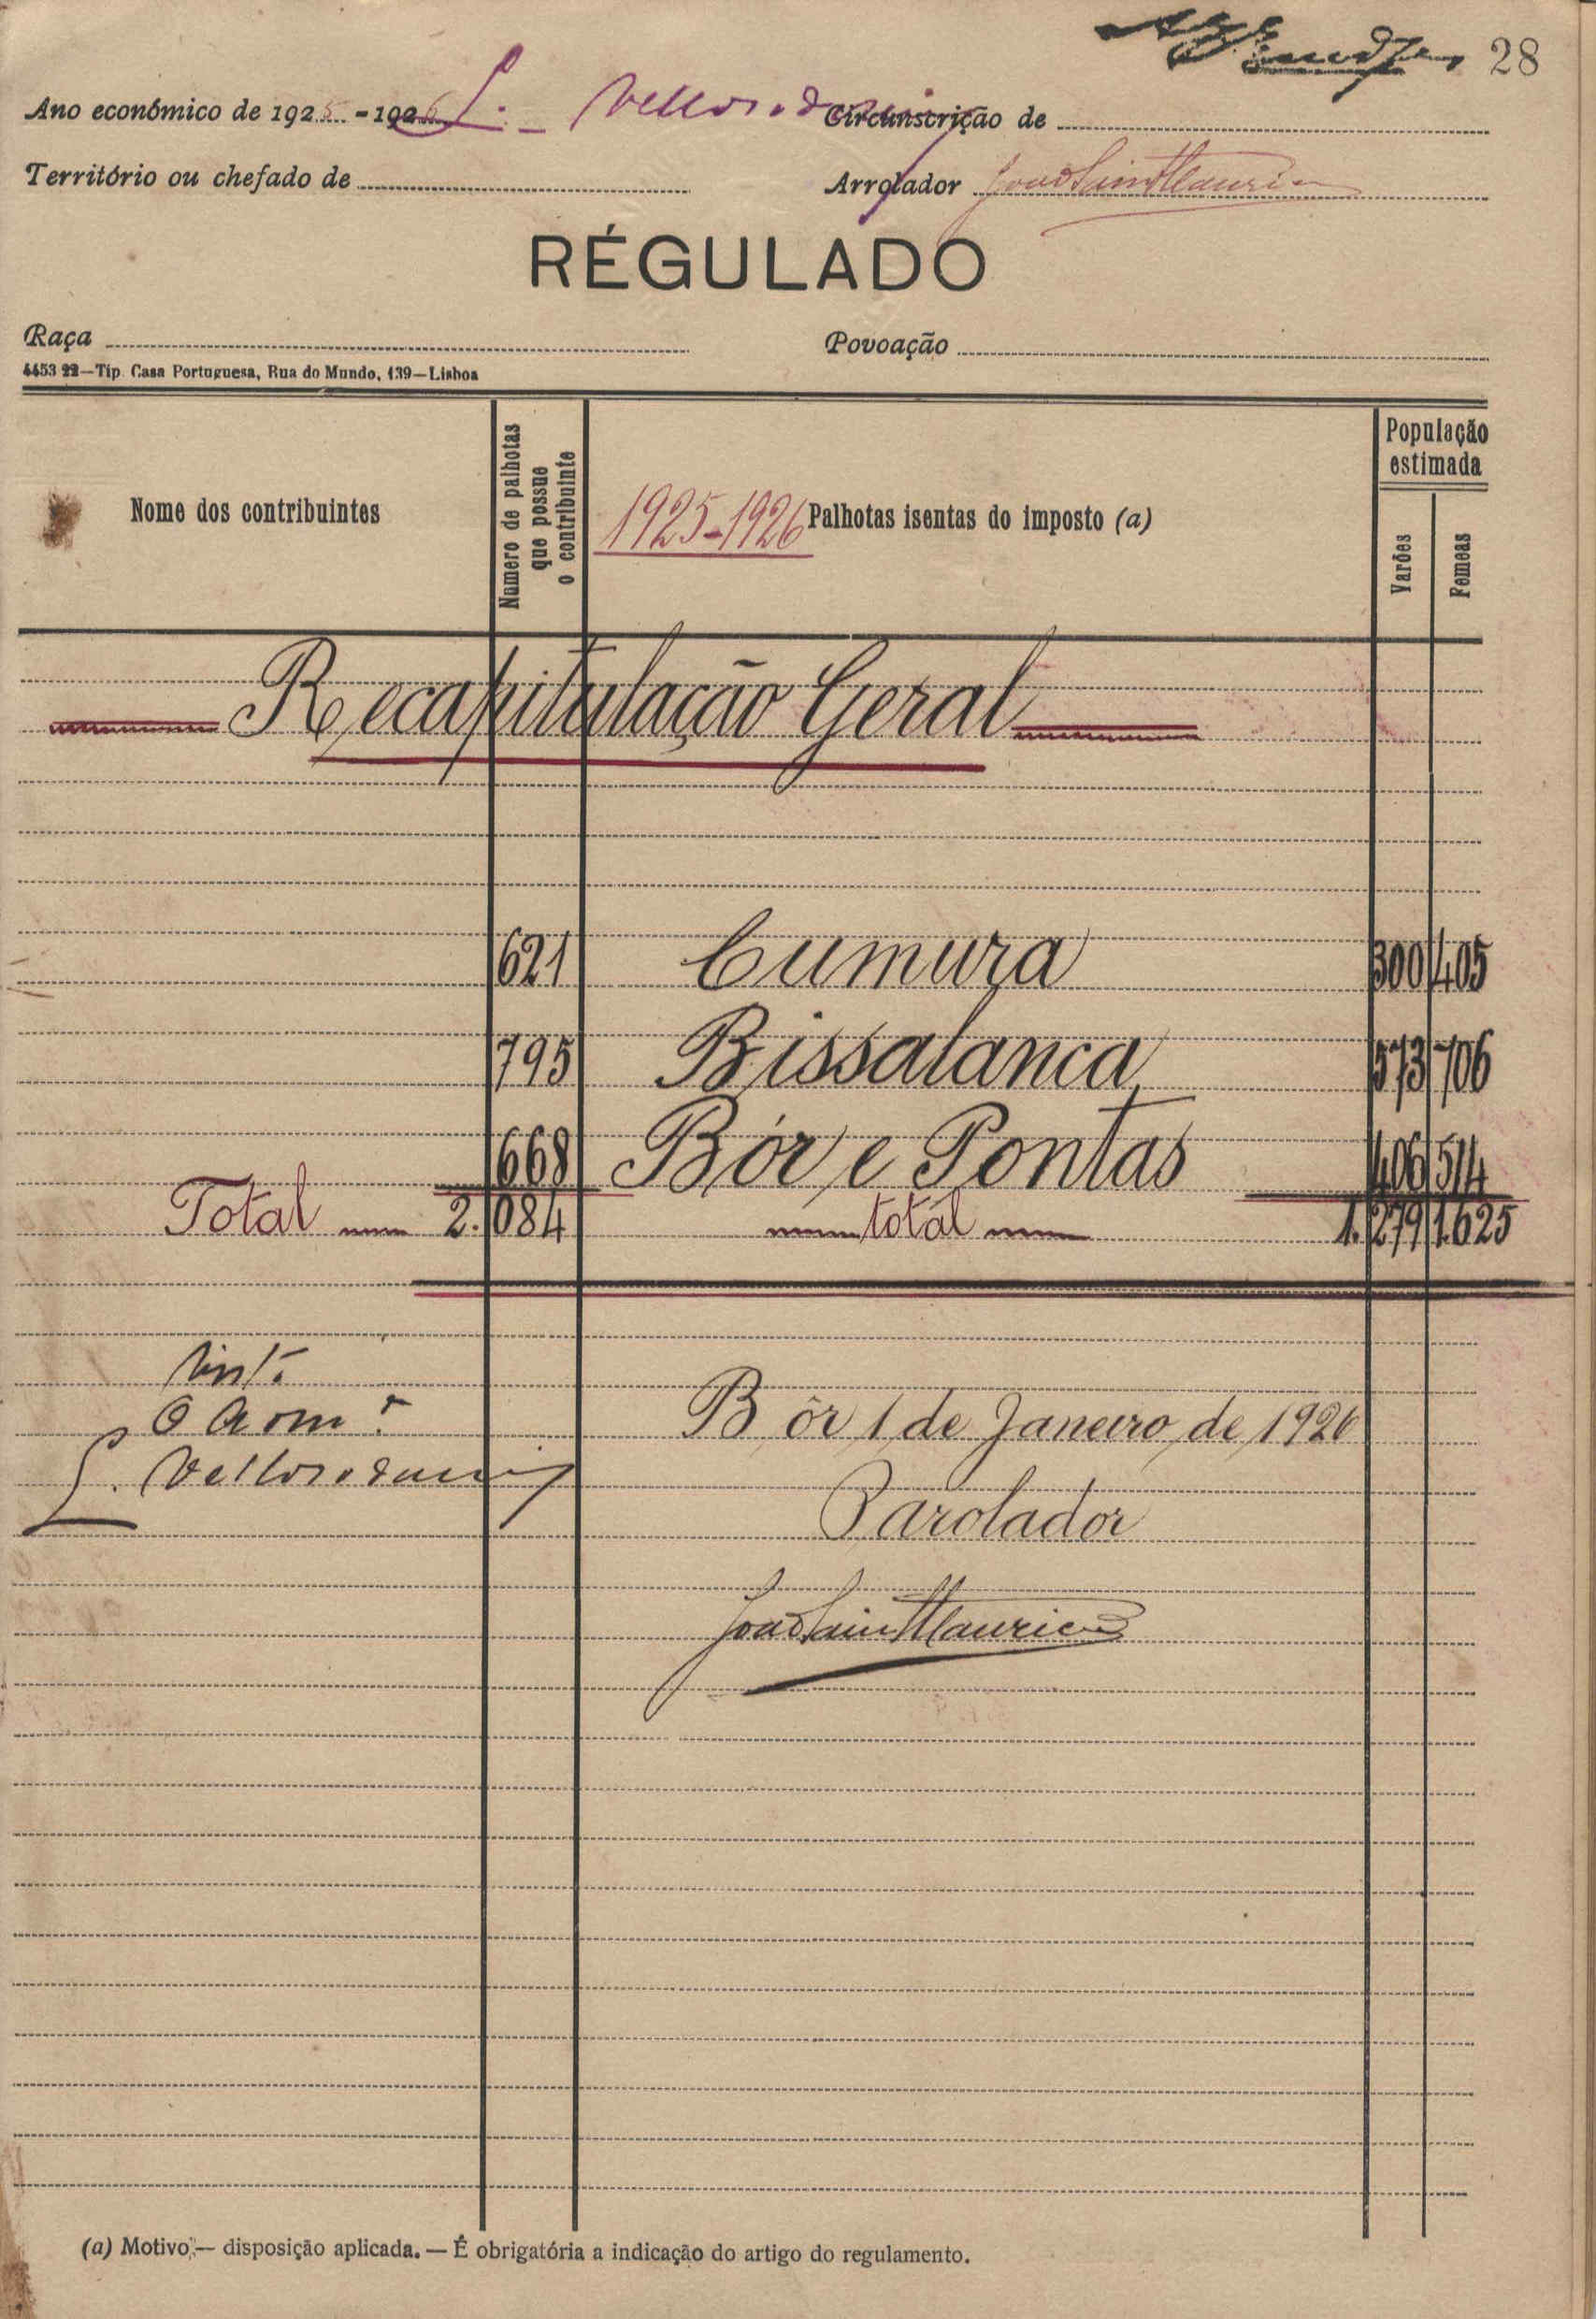 28
Ano económico de 1925-1926 L. Velloso Circunscrição de
Território ou chefado de Arrolador João Saint Maurice
RÉGULADO
Raça Povoação
4453 22—Tip. Casa Portuguesa, Rua do Mundo, 139—Lisboa
Nome dos contribuintes
Numero de palhotas que possue o contribuinte
1925-1926 Palhotas isentas do imposto (a)
População estimada
Varões
Femeas
Recapitulação Geral
621 Cumura 300 405
795 Bissalanca 573 706
668 Bór e Pontas 406 514
Total 2.084 total 1.279 1.625
Visto
O Adm.or
L. Velloso
Bôr 1 de Janeiro de 1926
O arolador
João Saint Maurice
(a) Motivo;— disposição aplicada. — É obrigatória a indicação do artigo do regulamento.